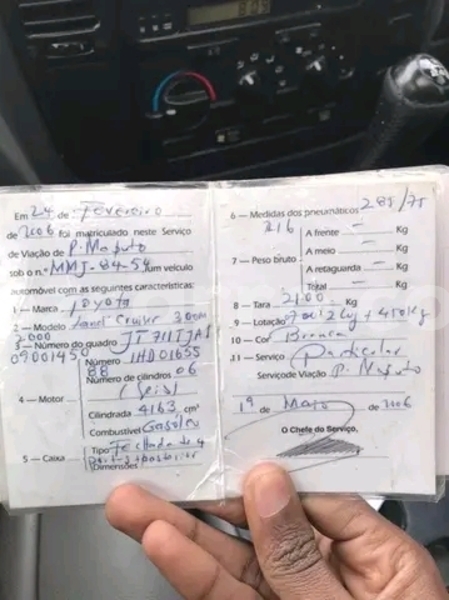 8:09
Em 24 de Fevereiro
de 2006 foi matriculado neste Serviço
de Viação de P. Maputo
sob o n.º MMJ-84-54, um veículo
automóvel com as seguintes características:
1 — Marca Toyota
2 — Modelo Land Cruiser
3 — Número do quadro JT711TJA
09001450
4 — Motor
Número 1HD01655
88
Número de cilindros 06
(seis)
Cilindrada 4163 cm³
Combustível Gasóleo
5 — Caixa
Tipo Fechada de 4
Dimensões
6 — Medidas dos pneumáticos 285/75
R16
7 — Peso bruto
A frente — Kg
A meio — Kg
A retaguarda — Kg
Total — Kg
8 — Tara 2100 Kg
9 — Lotação + 450Kg
10 — Cor Branca
11 — Serviço Particular
Serviço de Viação P. Maputo
1º de Março de 2006
O Chefe do Serviço,